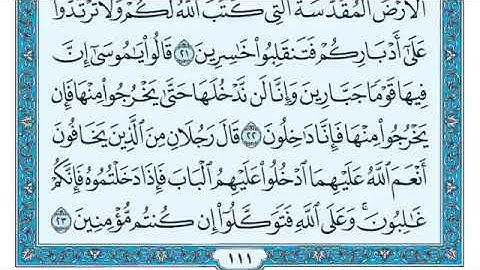 الْأَرْضَ الْمُقَدَّسَةَ الَّتِي كَتَبَ اللَّهُ لَكُمْ وَلَا تَرْتَدُّوا
عَلَىٰ أَدْبَارِكُمْ فَتَنقَلِبُوا خَاسِرِينَ ٢١ قَالُوا يَامُوسَىٰ إِنَّ
فِيهَا قَوْمًا جَبَّارِينَ وَإِنَّا لَن نَّدْخُلَهَا حَتَّىٰ يَخْرُجُوا مِنْهَا فَإِن
يَخْرُجُوا مِنْهَا فَإِنَّا دَاخِلُونَ ٢٢ قَالَ رَجُلَانِ مِنَ الَّذِينَ يَخَافُونَ
أَنْعَمَ اللَّهُ عَلَيْهِمَا ادْخُلُوا عَلَيْهِمُ الْبَابَ فَإِذَا دَخَلْتُمُوهُ فَإِنَّكُمْ
غَالِبُونَ ۚ وَعَلَى اللَّهِ فَتَوَكَّلُوا إِن كُنتُم مُّؤْمِنِينَ ٢٣
١١١